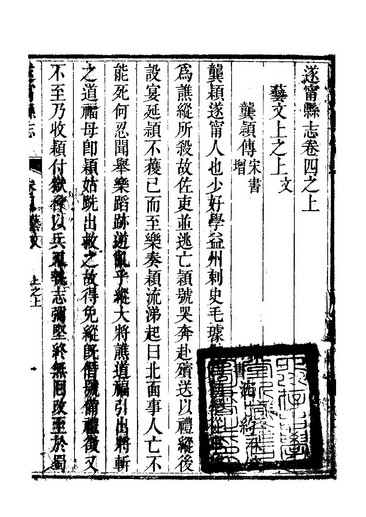 遂甯縣志卷四之上
藝文上之上 文
龔穎傳 宋書 增
龔穎遂甯人也少好學益州刺史毛璩
爲譙縱所殺故佐吏並逃亡穎號哭奔赴殯送以禮縱後
設宴延穎不獲已而至樂奏穎流涕起曰北面事人亡不
能死何忍聞舉樂蹈跡逆亂乎縱大將譙道福引出將斬
之道福母卽穎姑跣出救之故得免縱旣僭號備禮徵又
不至乃收穎付獄脅以兵刃執志彌堅終無回改至於蜀
遂甯縣志 藝文 上之上